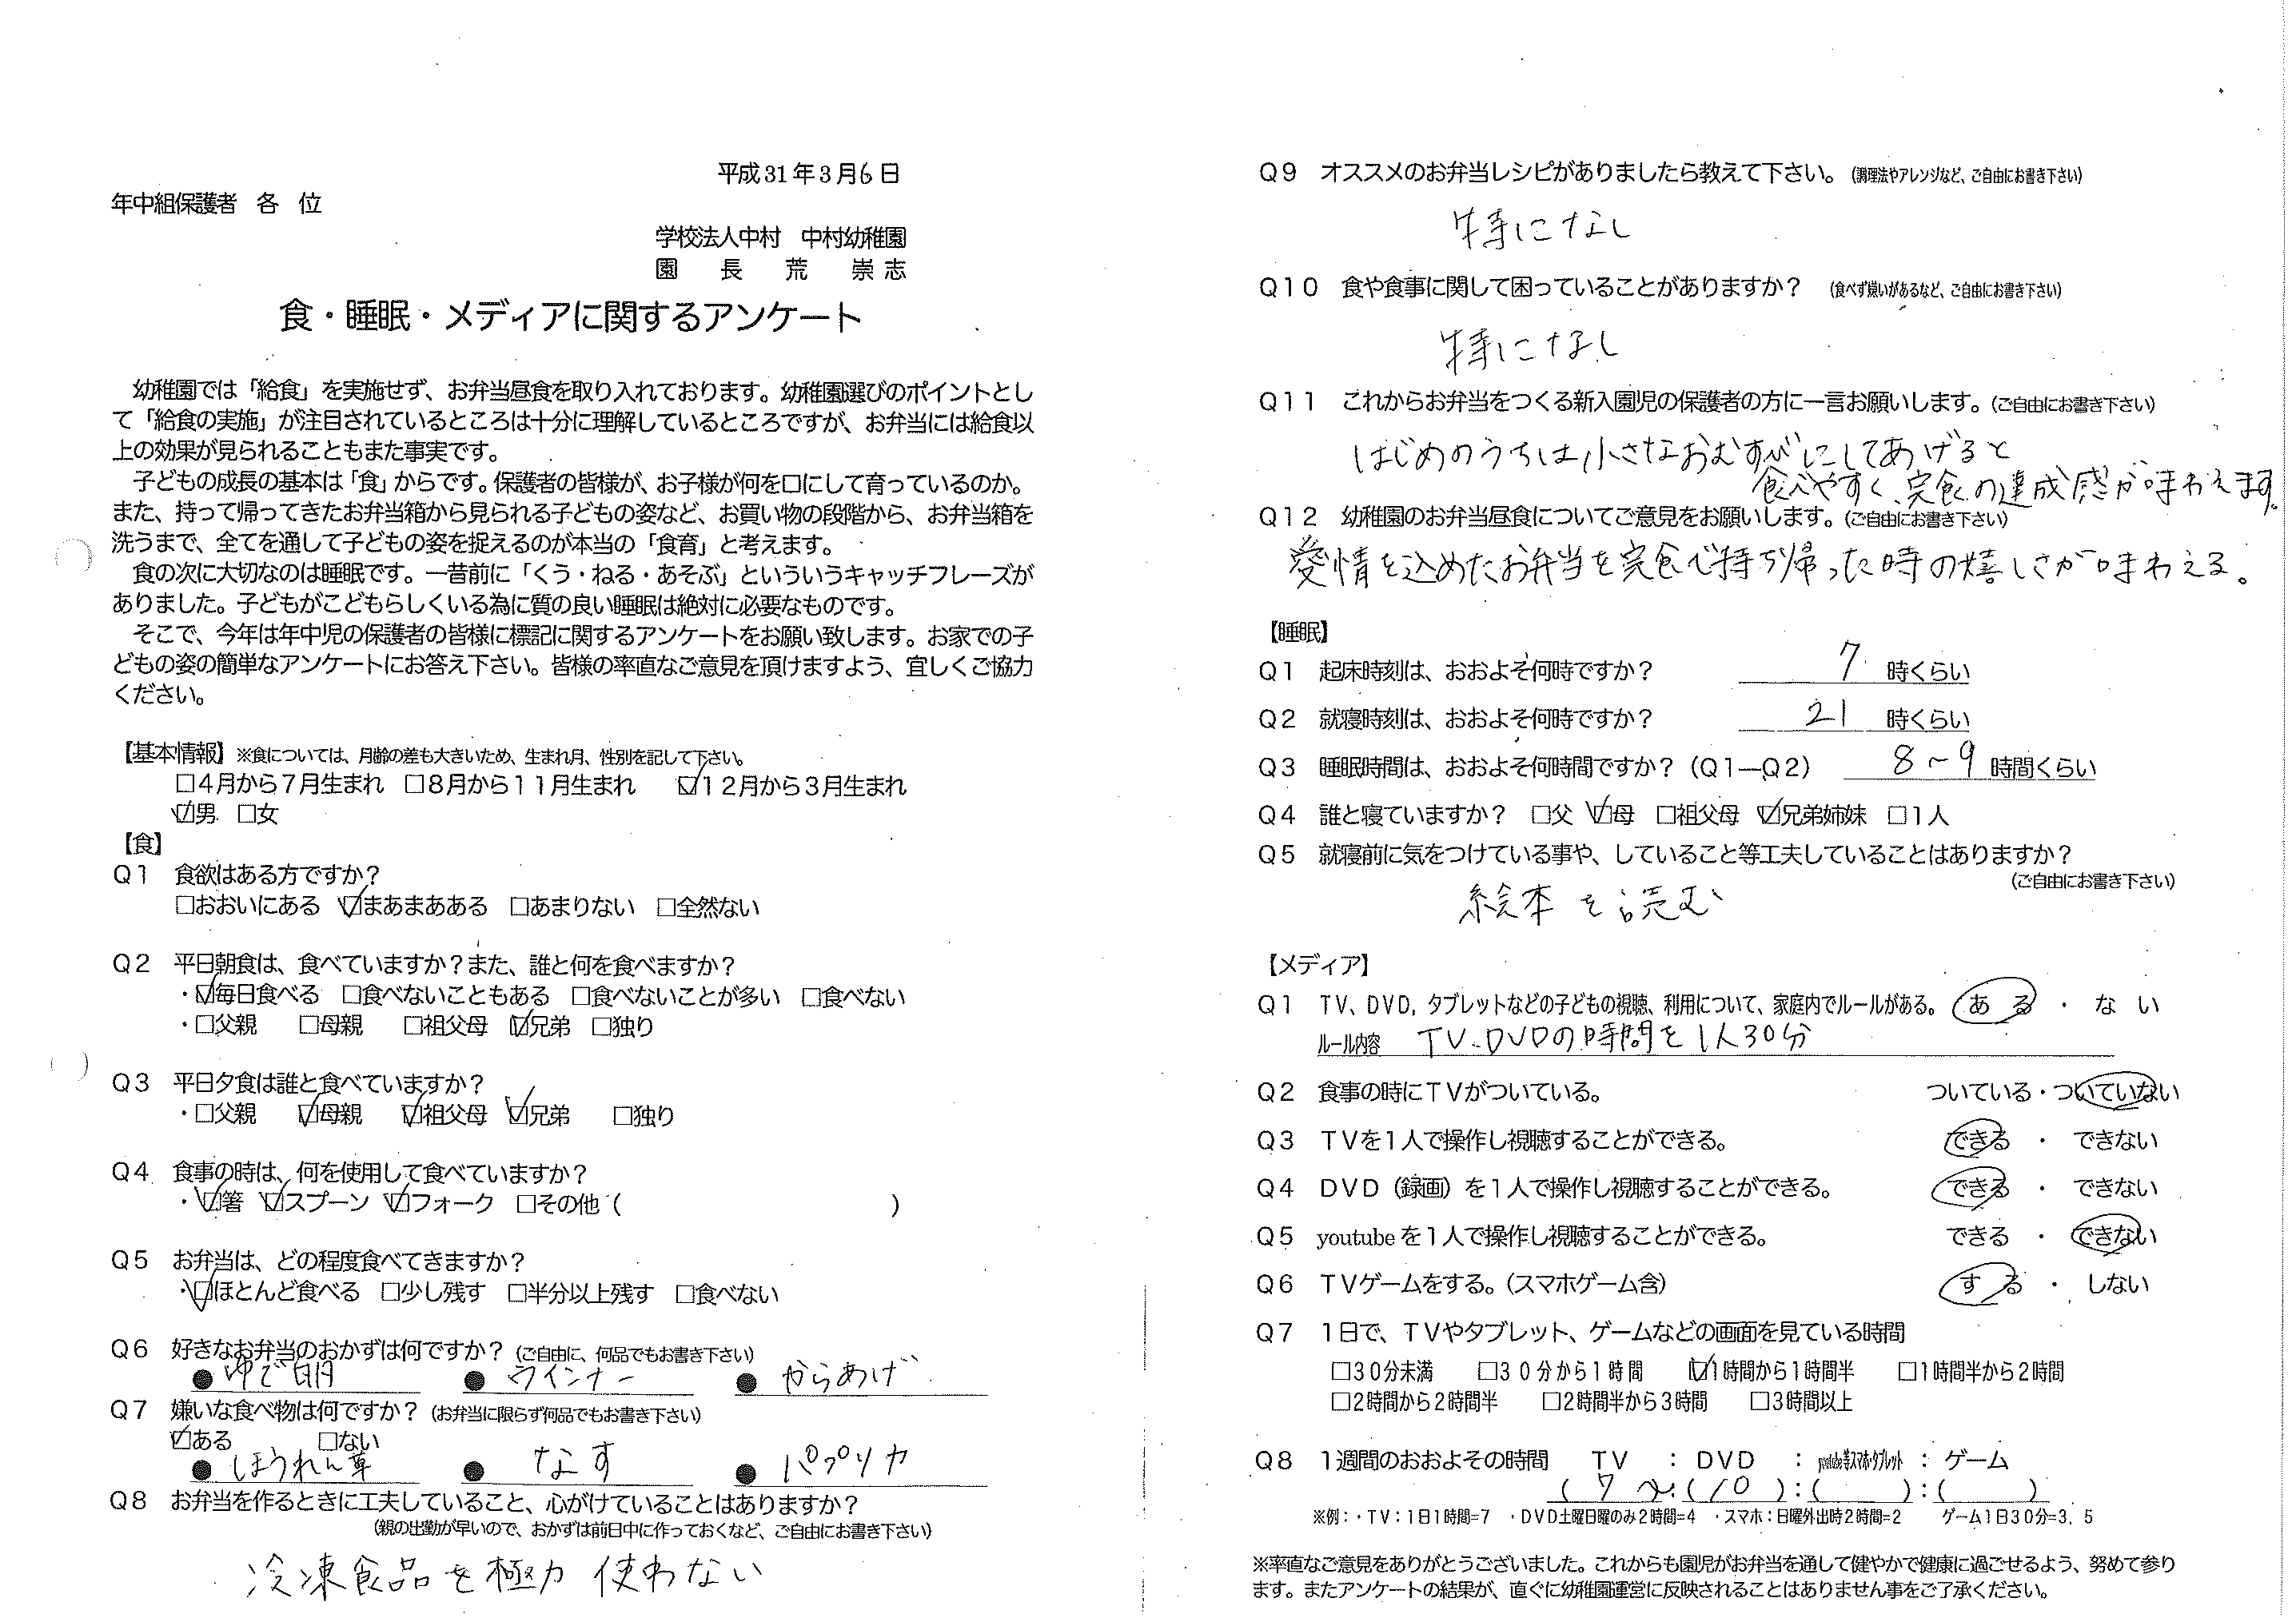 平成31年3月6日
年中組保護者 各 位
学校法人中村 中村幼稚園
園 長 荒 崇志
食・睡眠・メディアに関するアンケート
幼稚園では「給食」を実施せず、お弁当昼食を取り入れております。幼稚園選びのポイントとし
て「給食の実施」が注目されているところは十分に理解しているところですが、お弁当には給食以
上の効果が見られることもまた事実です。
子どもの成長の基本は「食」からです。保護者の皆様が、お子様が何を口にして育っているのか。
また、持って帰ってきたお弁当箱から見られる子どもの姿など、お買い物の段階から、お弁当箱を
洗うまで、全てを通して子どもの姿を捉えるのが本当の「食育」と考えます。
食の次に大切なのは睡眠です。一昔前に「くう・ねる・あそぶ」といういうキャッチフレーズが
ありました。子どもがこどもらしくいる為に質の良い睡眠は絶対に必要なものです。
そこで、今年は年中児の保護者の皆様に標記に関するアンケートをお願い致します。お家での子
どもの姿の簡単なアンケートにお答え下さい。皆様の率直なご意見を頂けますよう、宜しくご協力
ください。
【基本情報】※食については、月齢の差も大きいため、生まれ月、性別を記して下さい。
□4月から7月生まれ □8月から11月生まれ ☑12月から3月生まれ
☑男 □女
【食】
Q1 食欲はある方ですか?
□おおいにある ☑まあまあある □あまりない □全然ない
Q2 平日朝食は、食べていますか?また、誰と何を食べますか?
・☑毎日食べる □食べないこともある □食べないことが多い □食べない
・□父親 □母親 □祖父母 ☑兄弟 □独り
Q3 平日夕食は誰と食べていますか?
・□父親 ☑母親 ☑祖父母 ☑兄弟 □独り
Q4 食事の時は、何を使用して食べていますか?
・☑箸 ☑スプーン ☑フォーク □その他( )
Q5 お弁当は、どの程度食べてきますか?
・☑ほとんど食べる □少し残す □半分以上残す □食べない
Q6 好きなお弁当のおかずは何ですか?(ご自由に、何品でもお書き下さい)
●ゆで卵 ●ウインナー ●からあげ
Q7 嫌いな食べ物は何ですか?(お弁当に限らず何品でもお書き下さい)
☑ある □ない
●ほうれん草 ●なす ●パプリカ
Q8 お弁当を作るときに工夫していること、心がけていることはありますか?
(親の出勤が早いので、おかずは前日中に作っておくなど、ご自由にお書き下さい)
冷凍食品を極力使わない
Q9 オススメのお弁当レシピがありましたら教えて下さい。(調理法やアレンジなど、ご自由にお書き下さい)
特になし
Q10 食や食事に関して困っていることがありますか? (食べず嫌いがあるなど、ご自由にお書き下さい)
特になし
Q11 これからお弁当をつくる新入園児の保護者の方に一言お願いします。(ご自由にお書き下さい)
はじめのうちは小さなおむすびにしてあげると
食べやすく、完食の達成感が味わえます。
Q12 幼稚園のお弁当昼食についてご意見をお願いします。(ご自由にお書き下さい)
愛情を込めたお弁当を完食し持ち帰った時の嬉しさが味わえる。
【睡眠】
Q1 起床時刻は、おおよそ何時ですか? 7 時くらい
Q2 就寝時刻は、おおよそ何時ですか? 21 時くらい
Q3 睡眠時間は、おおよそ何時間ですか?(Q1―Q2) 8~9 時間くらい
Q4 誰と寝ていますか? □父 ☑母 □祖父母 ☑兄弟姉妹 □1人
Q5 就寝前に気をつけている事や、していること等工夫していることはありますか?
(ご自由にお書き下さい)
絵本を読む
【メディア】
Q1 TV、DVD,タブレットなどの子どもの視聴、利用について、家庭内でルールがある。 ある ・ ない
ルール内容 TV.DVDの時間を1人30分
Q2 食事の時にTVがついている。 ついている・ついていない
Q3 TVを1人で操作し視聴することができる。 できる ・ できない
Q4 DVD(録画)を1人で操作し視聴することができる。 できる ・ できない
Q5 youtubeを1人で操作し視聴することができる。 できる ・ できない
Q6 TVゲームをする。(スマホゲーム含) する ・ しない
Q7 1日で、TVやタブレット、ゲームなどの画面を見ている時間
□30分未満 □30分から1時間 ☑1時間から1時間半 □1時間半から2時間
□2時間から2時間半 □2時間半から3時間 □3時間以上
Q8 1週間のおおよその時間 TV : DVD : youtube等スマホ・タブレット : ゲーム
( 7 ):(10 ):( ):( )
※例:・TV:1日1時間=7 ・DVD土曜日曜のみ2時間=4 ・スマホ:日曜外出時2時間=2 ゲーム1日30分=3.5
※率直なご意見をありがとうございました。これからも園児がお弁当を通して健やかで健康に過ごせるよう、努めて参り
ます。またアンケートの結果が、直ぐに幼稚園運営に反映されることはありません事をご了承ください。